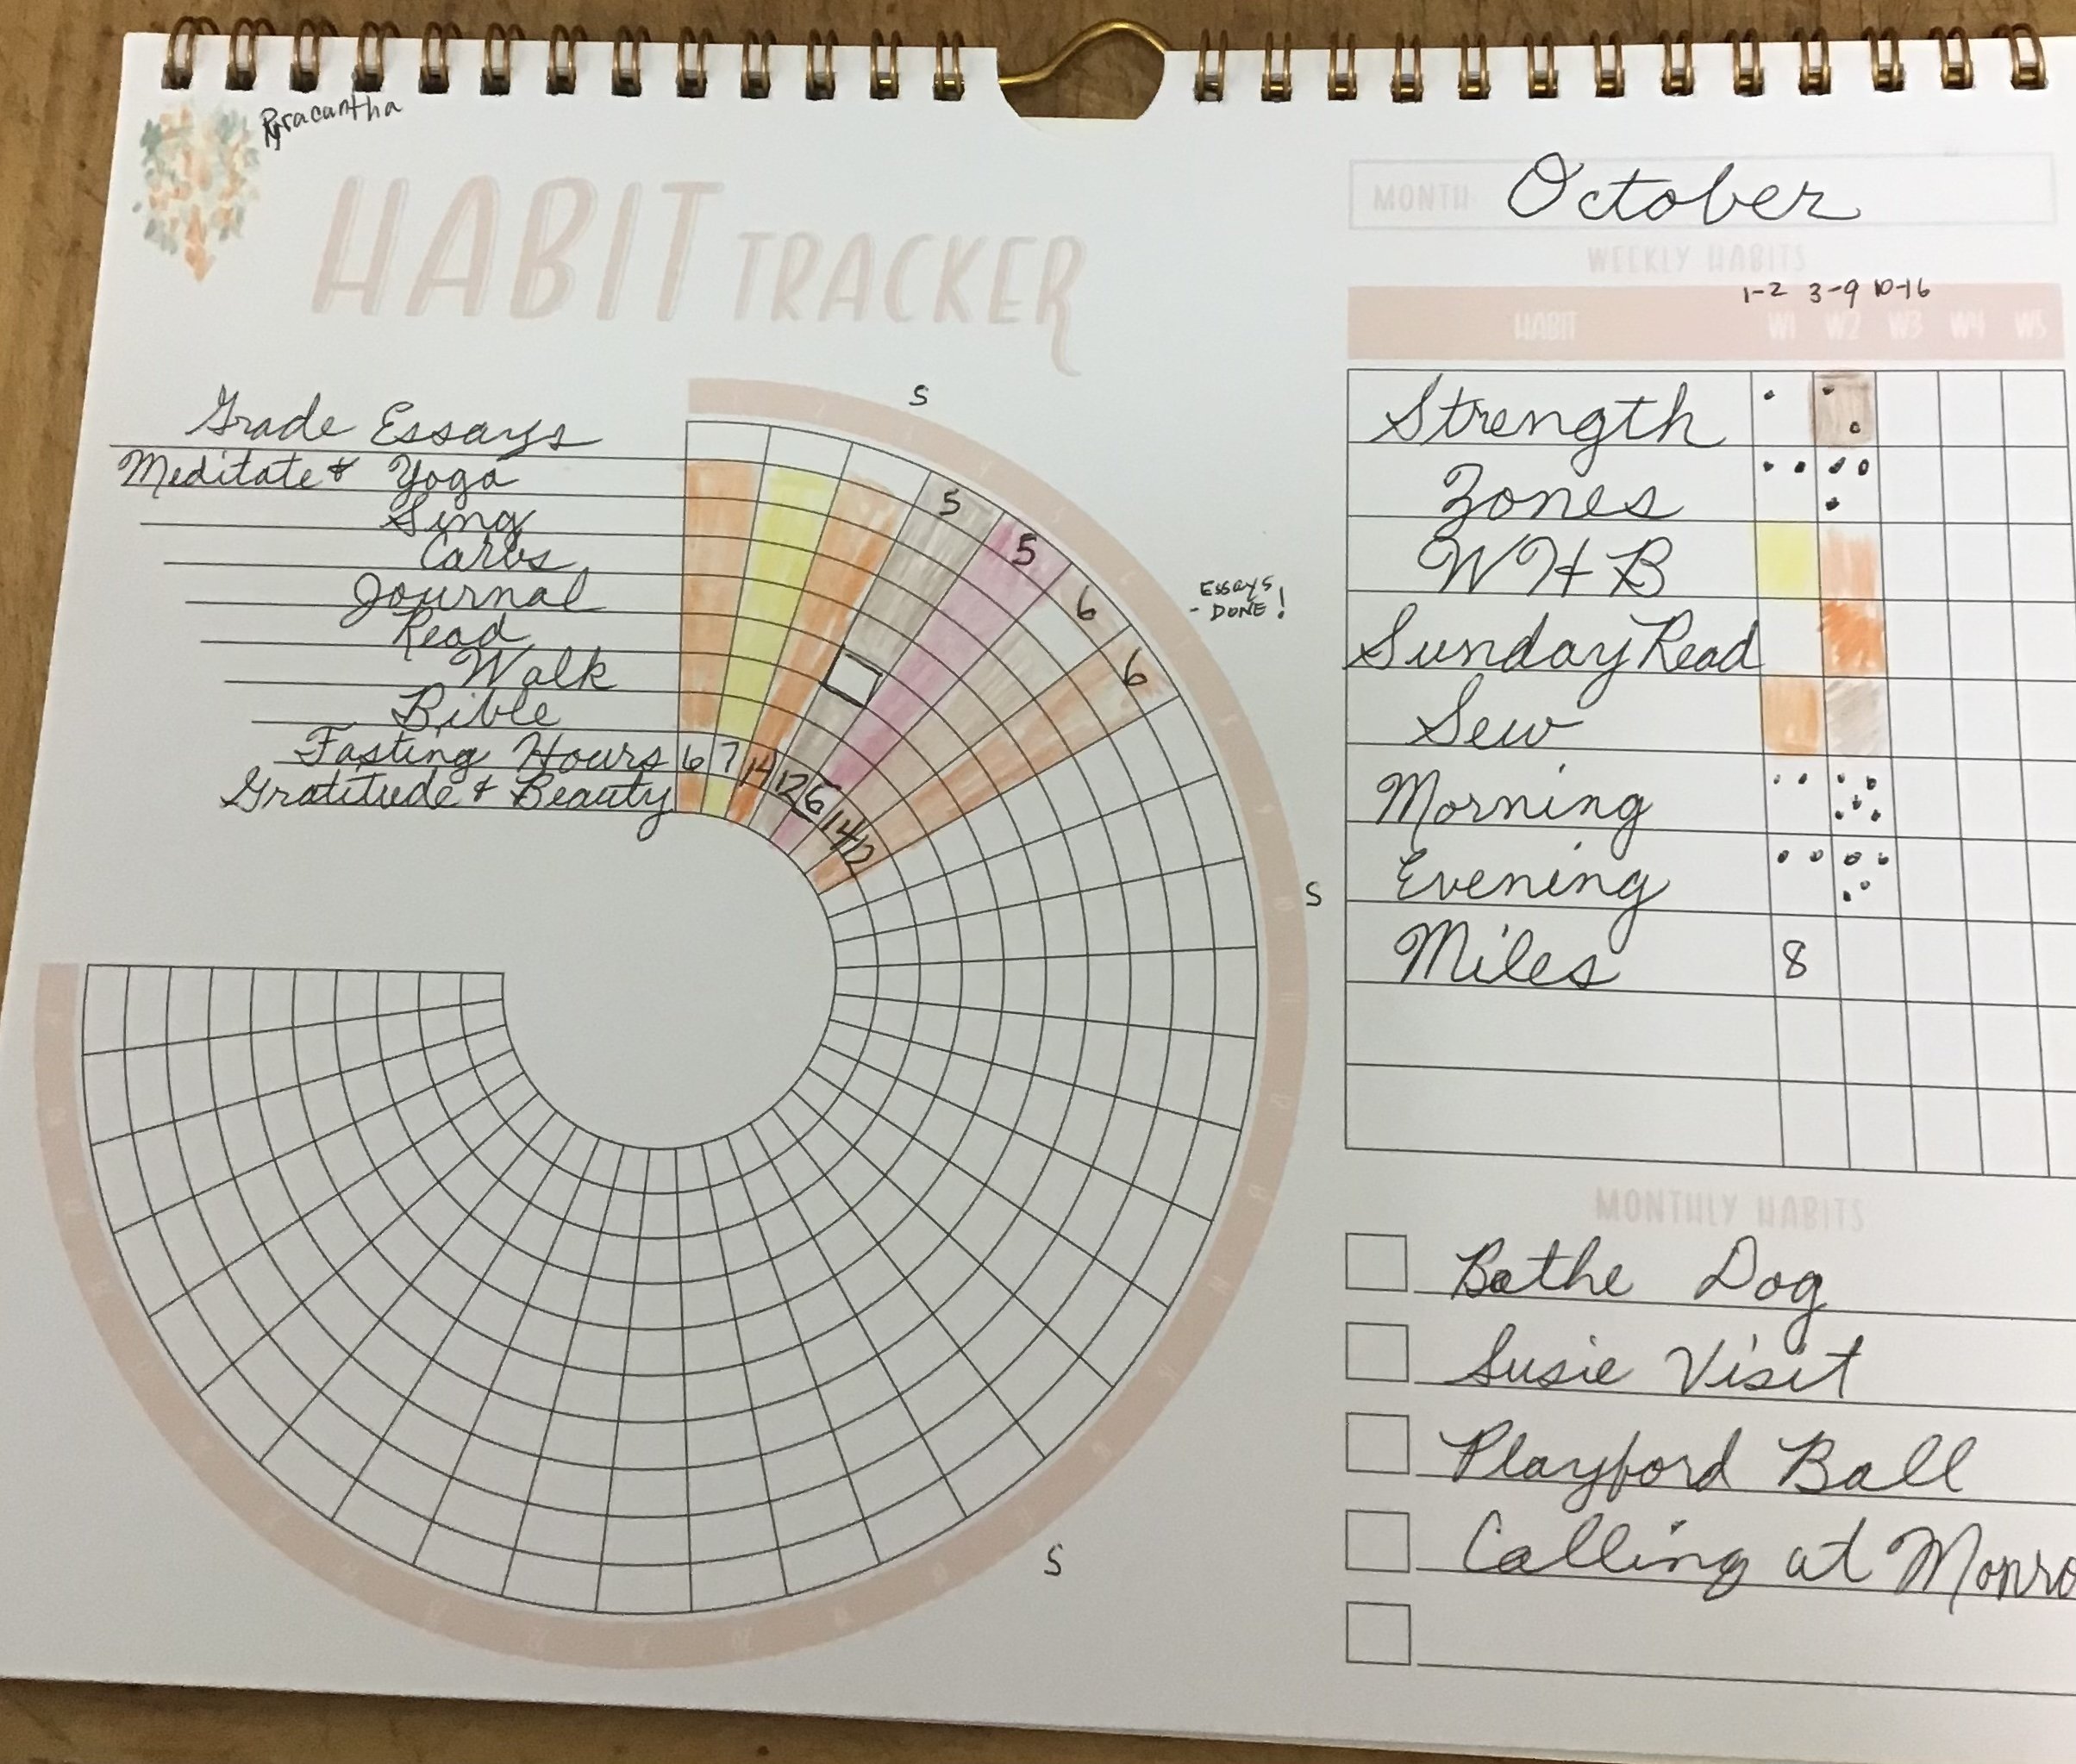 Pyracantha
HABIT TRACKER
Grade Essays
Meditate & Yoga
Sing
Carbs
Journal
Read
Walk
Bible
Fasting Hours 6 7 14 12 15 14 12
Gratitude & Beauty
5 5 6 6
S
S
S
Essays
- DONE!
MONTH: October
WEEKLY HABITS
1-2 3-9 10-16
HABIT W1 W2 W3 W4 W5
Strength
Zones
W H B
Sunday Read
Sew
Morning
Evening
Miles 8
MONTHLY HABITS
Bathe Dog
Susie Visit
Playford Ball
Calling at Monro